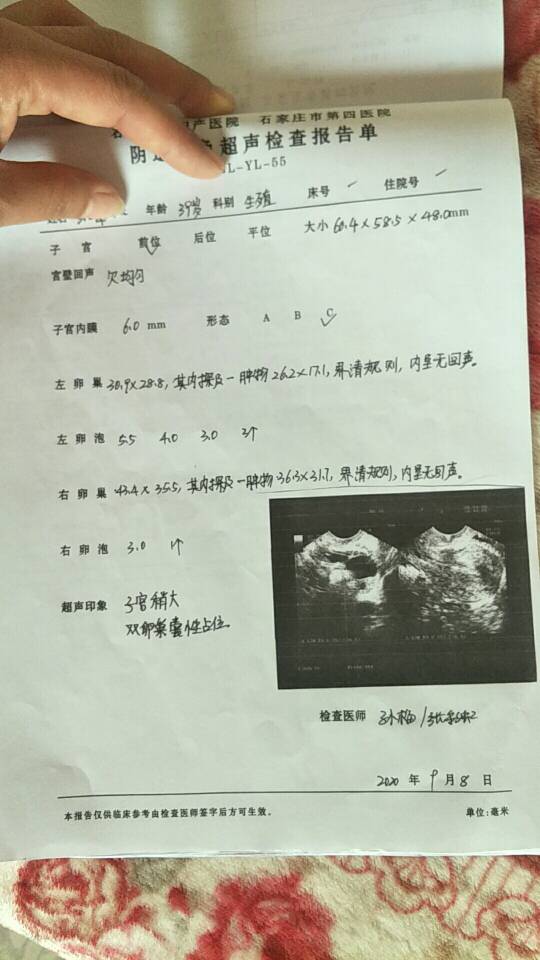 产医院 石家庄市第四医院
阴道 超声检查报告单
L-YL-55
年龄 39岁 科别 生殖 床号 住院号
子宫 前位 后位 平位 大小 60.4×58.5×48.0mm
宫壁回声 欠均匀
子宫内膜 6.0 mm 形态 A B C
左卵巢 30.9×28.8,其内探及一肿物26.2×17.1,界清规则,内呈无回声。
左卵泡 5.5 4.0 3.0 3个
右卵巢 43.4×35.5,其内探及一肿物36.3×31.7,界清规则,内呈无回声。
右卵泡 3.0 1个
超声印象 子宫稍大
双卵巢囊性占位
检查医师 孙梅/
2020 年 9 月 8 日
本报告仅供临床参考由检查医师签字后方可生效。 单位:毫米